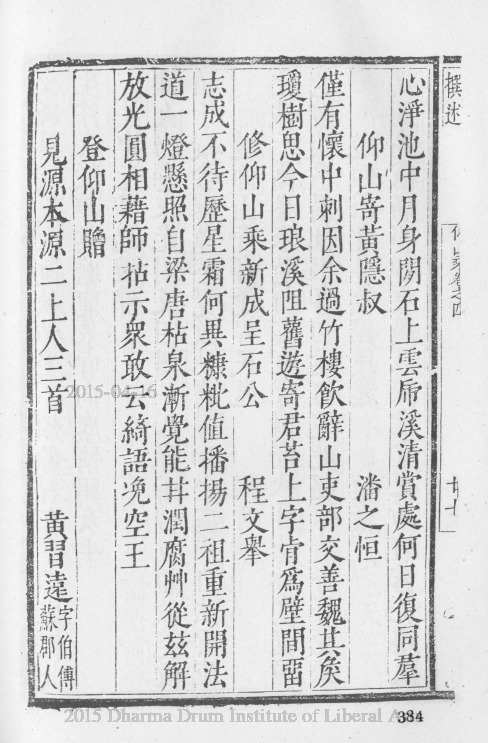 撰述
心淨池中月身閒石上雲虎溪清賞處何日復同羣
仰山寄黃隱叔　潘之恒
僅有懷中刺因余過竹樓飲辭山吏部交善魏其矦
瓊樹思今日琅溪阻舊遊寄君苔上字肯爲壁間畱
修仰山乘新成呈石公　程文舉
志成不待歷星霜何異糠粃值播揚二祖重新開法
道一燈懸照自梁唐枯泉漸覺能井潤腐艸從茲解
放光圓相藉師拈示衆敢云綺語兔空王
登仰山贈
見源本源二上人三首　黃習遠 字伯傅 蘇郡人
2015-04-16
2015 Dharma Drum Institute of Liberal A
384